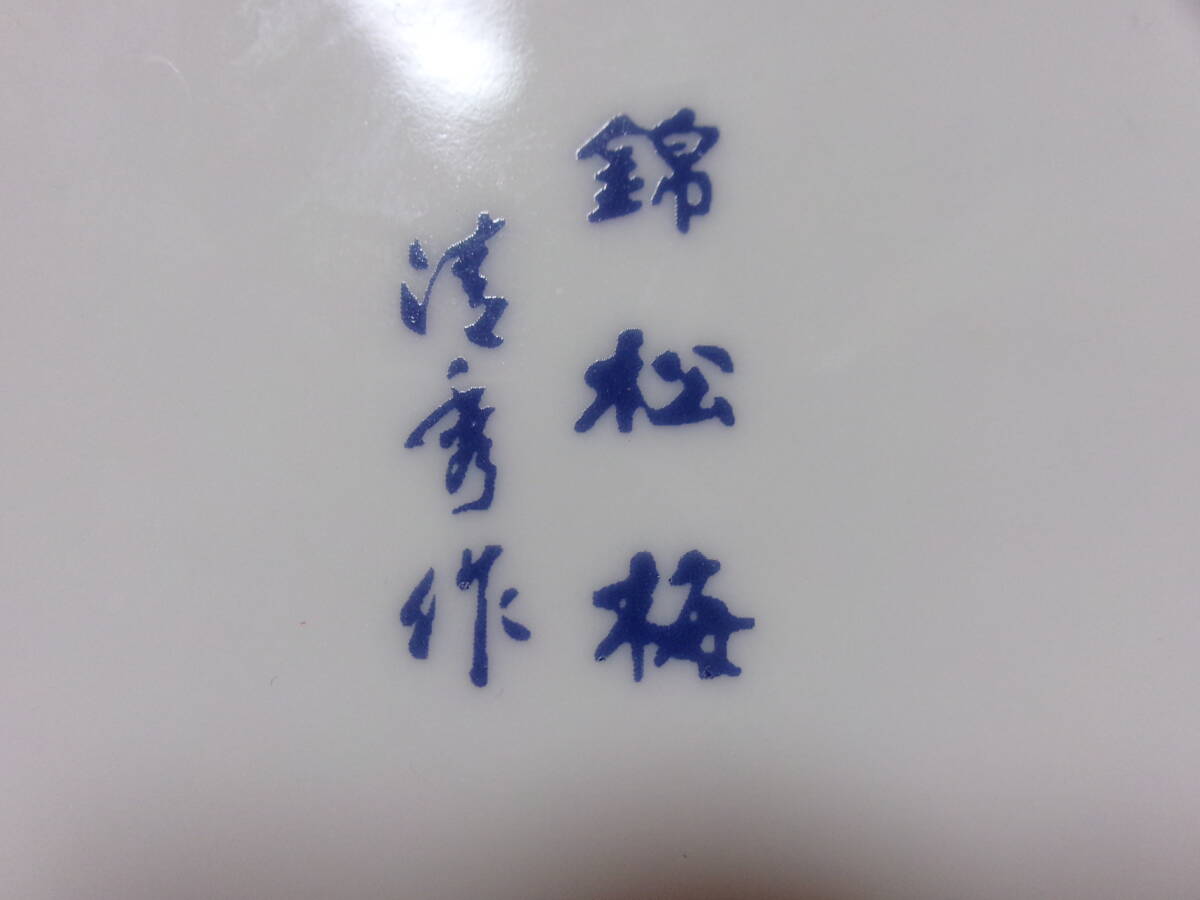 錦松梅
清秀作